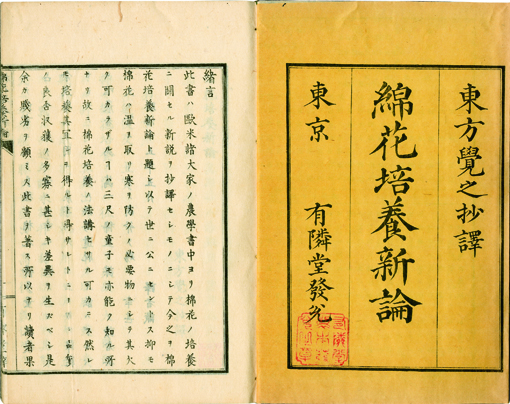 東方覺之抄譯
綿花培養新論
東京 有隣堂發兌
緒言
此書ハ歐米諸大家ノ農學書中ヨリ棉花ノ培養
ニ關セル新説ヲ抄譯セシモノニシテ今之ヲ棉
花培養新論ト題シ以テ世ニ公ニセント欲ス抑モ
棉花ハ温ヲ取リ寒ヲ防クノ必要物ニシテ其欠
可カラサルヿハ三尺ノ童子モ亦能ク知ル所
ナリ故ニ棉花培養ノ法講セサル可カラス然レ
培養其宜シキヲ得ルト得サルトニ
良否收獲ノ多寡ニ甚シキ差異ヲ生スベシ是
余カ賤劣ヲ顧ミス此書ヲ著ス所以ナリ讀者果